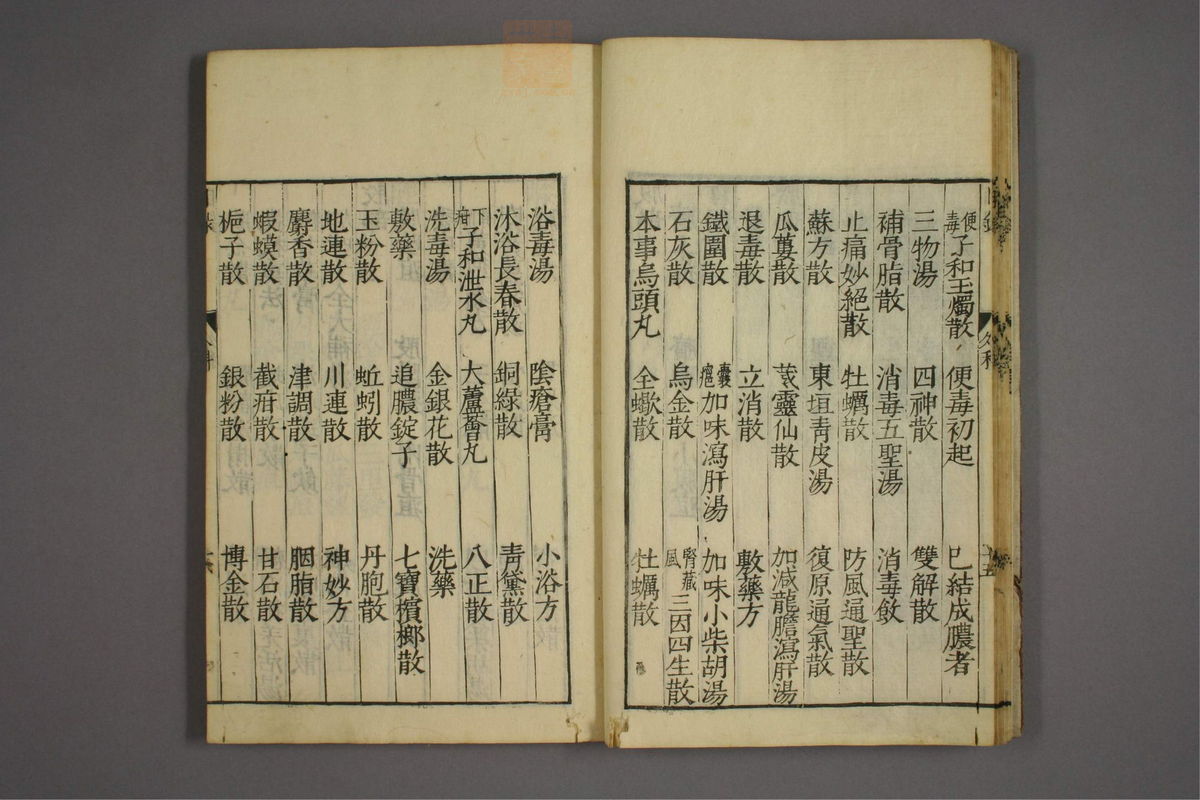 便毒子和玉燭散 便毒初起 已結成膿者
三物湯 四神散 雙解散
補骨脂散 消毒五聖湯 消毒飲
止痛妙絕散 牡蠣散 防風通聖散
蘇方散 東垣青皮湯 復原通氣散
瓜蔞散 靈仙散 加減龍膽瀉肝湯
退毒散 立消散 敷藥方
鐵圍散 囊癰加味瀉肝湯 加味小柴胡湯
石灰散 烏金散 腎藏風三因四生散
本事烏頭丸 全蠍散 牡蠣散
浴毒湯 陰瘡膏 小浴方
沐浴長春散 銅綠散 青黛散
下疳子和泄水丸 大蘆薈丸 八正散
洗毒湯 金銀花散 洗藥
敷藥 追膿錠子 七寶檳榔散
玉粉散 蚯蚓散 丹胞散
地連散 川連散 神妙方
麝香散 津調散 胭脂散
蝦蟆散 截疳散 甘石散
梔子散 銀粉散 博金散